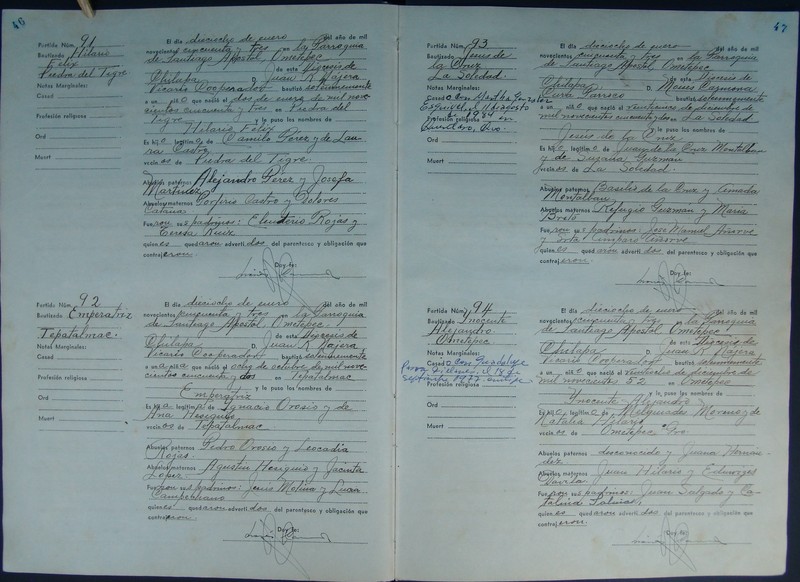 46
Partida Núm. 91
Bautiendo Hilario
Felix
Piedra del Tigre
Notas Marginales:
Casad
Profesión religiosa
Ord
Muert
El día dieciocho de enero del año de mil
novecientos cincuenta y tres en la Parroquia
de Santiago Apostol Ometepec
de este Diocesis de
Chilapa D. Juan R. Najera
Vicario Cooperador bautizó solemnemente
a un niño que nació el dos de enero de mil nove
cientos cincuenta y tres en Piedra del
Tigre y le puso los nombres de
Hilario Felix
Es hijo legítimo de Camilo Pérez y de Lau
ra Castro
vecinos de Piedra del Tigre.
Abuelos paternos Alejandro Pérez y Josefa
Martínez
Abuelos maternos Porfirio Castro y Dolores
Fueron sus padrinos: Eleuterio Rojas y
Teresa Ruiz
quienes quedaron advertidos del parentesco y obligación que
contrajeron.
Doy fe:
Partida Núm. 92
Bautiendo Emperatriz
Tepatalmac.
Notas Marginales:
Casad
Profesión religiosa
Ord
Muert
El día dieciocho de enero del año de mil
novecientos cincuenta y tres en la Parroquia
de Santiago Apostol Ometepec.
de este Diocesis de
Chilapa D. Juan R. Najera
Vicario Cooperador bautizó solemnemente
a una niña que nació el ocho de octubre de mil nove
cientos cincuenta y dos en Tepatalmac
y le puso los nombres de
Emperatriz
Es hija legítima de Ignacio Orosio y de
Ana
vecinos de Tepatalmac
Abuelos paternos Pedro Orosio y Leocadia
Rojas.
Abuelos maternos Agustin y Jacinta
Lopez.
Fueron sus padrinos: Jesús Molina y Luisa
quienes quedaron advertidos del parentesco y obligación que
contrajeron.
Doy fe:
47
Partida Núm. 93
Bautiendo Jesus de
la Cruz
La Soledad.
Notas Marginales:
Casado con Martha Gonzalez
Esquivel, el 4 Agosto
de 1984 en
Profesión religiosa
Querétaro, Qro.
Ord
Muert
El día dieciocho de enero del año de mil
novecientos cincuenta y tres en la Parroquia
de Santiago Apostol Ometepec
de esta Diocesis de
Chilapa D. Moises Carmona
Cura Parroco bautizó solemnemente
a un niño que nació el veinticinco de diciembre de
mil novecientos cincuenta y dos en La Soledad
y le puso los nombres de
Jesus de la Cruz
Es hijo legítimo de Juan de la Cruz Montalban
y de Susana Guzman
vecinos de La Soledad.
Abuelos paternos de la Cruz y
Montalban
Abuelos maternos Refugio Guzman y Maria
Fueron sus padrinos: Jose Manuel
quienes quedaron advertidos del parentesco y obligación que
contrajeron.
Doy fe:
Partida Núm. 94
Bautiendo Inocente
Alejandro
Ometepec
Notas Marginales:
Casado con Guadalupe
el 18 de
Septiembre 1977
Profesión religiosa
Ord
Muert
El día dieciocho de enero del año de mil
novecientos cincuenta y tres en la Parroquia
de Santiago Apostol Ometepec
de este Diocesis de
Chilapa D. Juan R. Najera
Vicario Cooperador bautizó solemnemente
a un niño que nació el veintiocho de diciembre de
mil novecientos 52 en Ometepec
y le puso los nombres de
Ynocente Alejandro
Es hijo legítimo de Melquiades Moreno y de
Natalia Hilario
vecinos de Ometepec Gro
Abuelos paternos desconocido y Juana Hernan
dez.
Abuelos maternos Juan Hilario y Eduviges
Davila.
Fueron sus padrinos: Juan Salgado y Ca
talina Salinas.
quienes quedaron advertidos del parentesco y obligación que
contrajeron.
Doy fe: